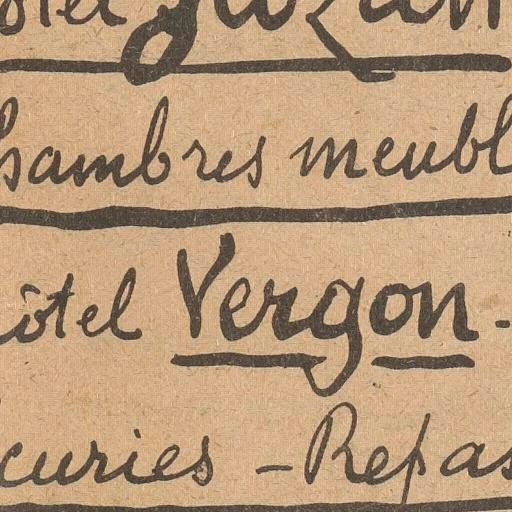 ôtel
hambres meubl
ôtel Vergon -
curies - Repas